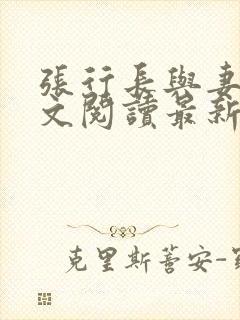 張行長與妻
文閱讀最新
克里斯蒂安-